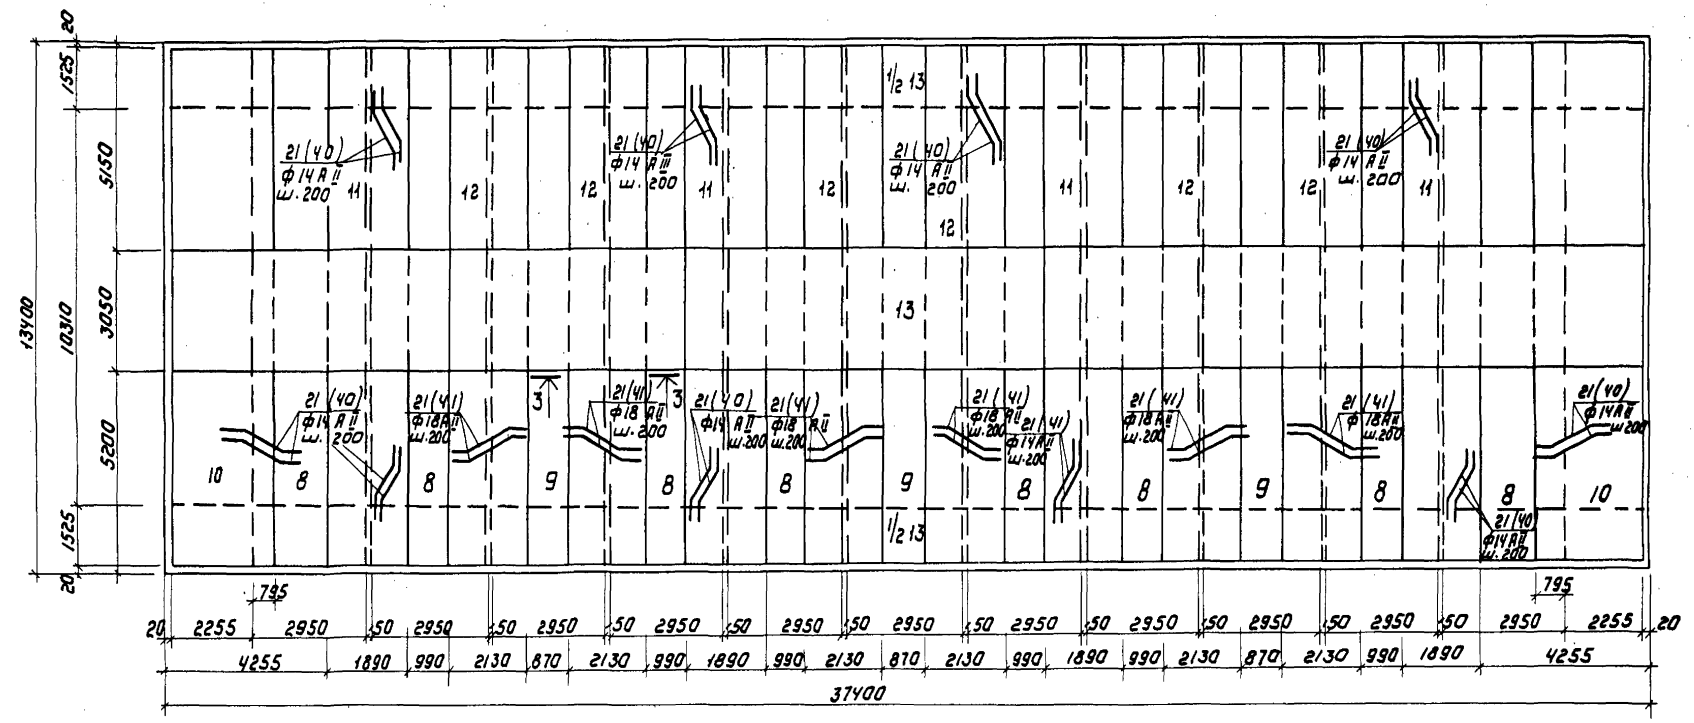 20
1525
5150
3050
5200
1525
20
10310
13400
1/2 13
21(40)
ф14 А II
ш.200
11
12
12
21(40)
ф14 А III
ш. 200
11
12
21(40)
ф14 А II
ш. 200
12
11
12
12
21(40)
ф14 А II
ш. 200
11
13
21(40)
ф14 А II
ш. 200
21(41)
ф18 А II
ш.200
3
21(41)
ф18 А II
ш.200
3
21(40)
ф14 А II
ш.200
21(41)
ф18 А II
ш.200
21(41)
ф18 А II
ш.200
21(41
ф14 А II
ш.200
21(41)
ф18 А II
ш.200
21(41)
ф18 А II
ш.200
21(40)
ф14 А II
ш.200
10
8
8
9
8
8
9
8
8
9
8
8
10
1/2 13
21(40
ф14 А II
ш.200
795
795
20 2255 2950 50 2950 50 2950 50 2950 50 2950 50 2950 50 2950 50 2950 50 2950 50 2950 50 2950 2255 20
4255 1890 990 2130 870 2130 990 1890 990 2130 870 2130 990 1890 990 2130 870 2130 990 1890 4255
37400